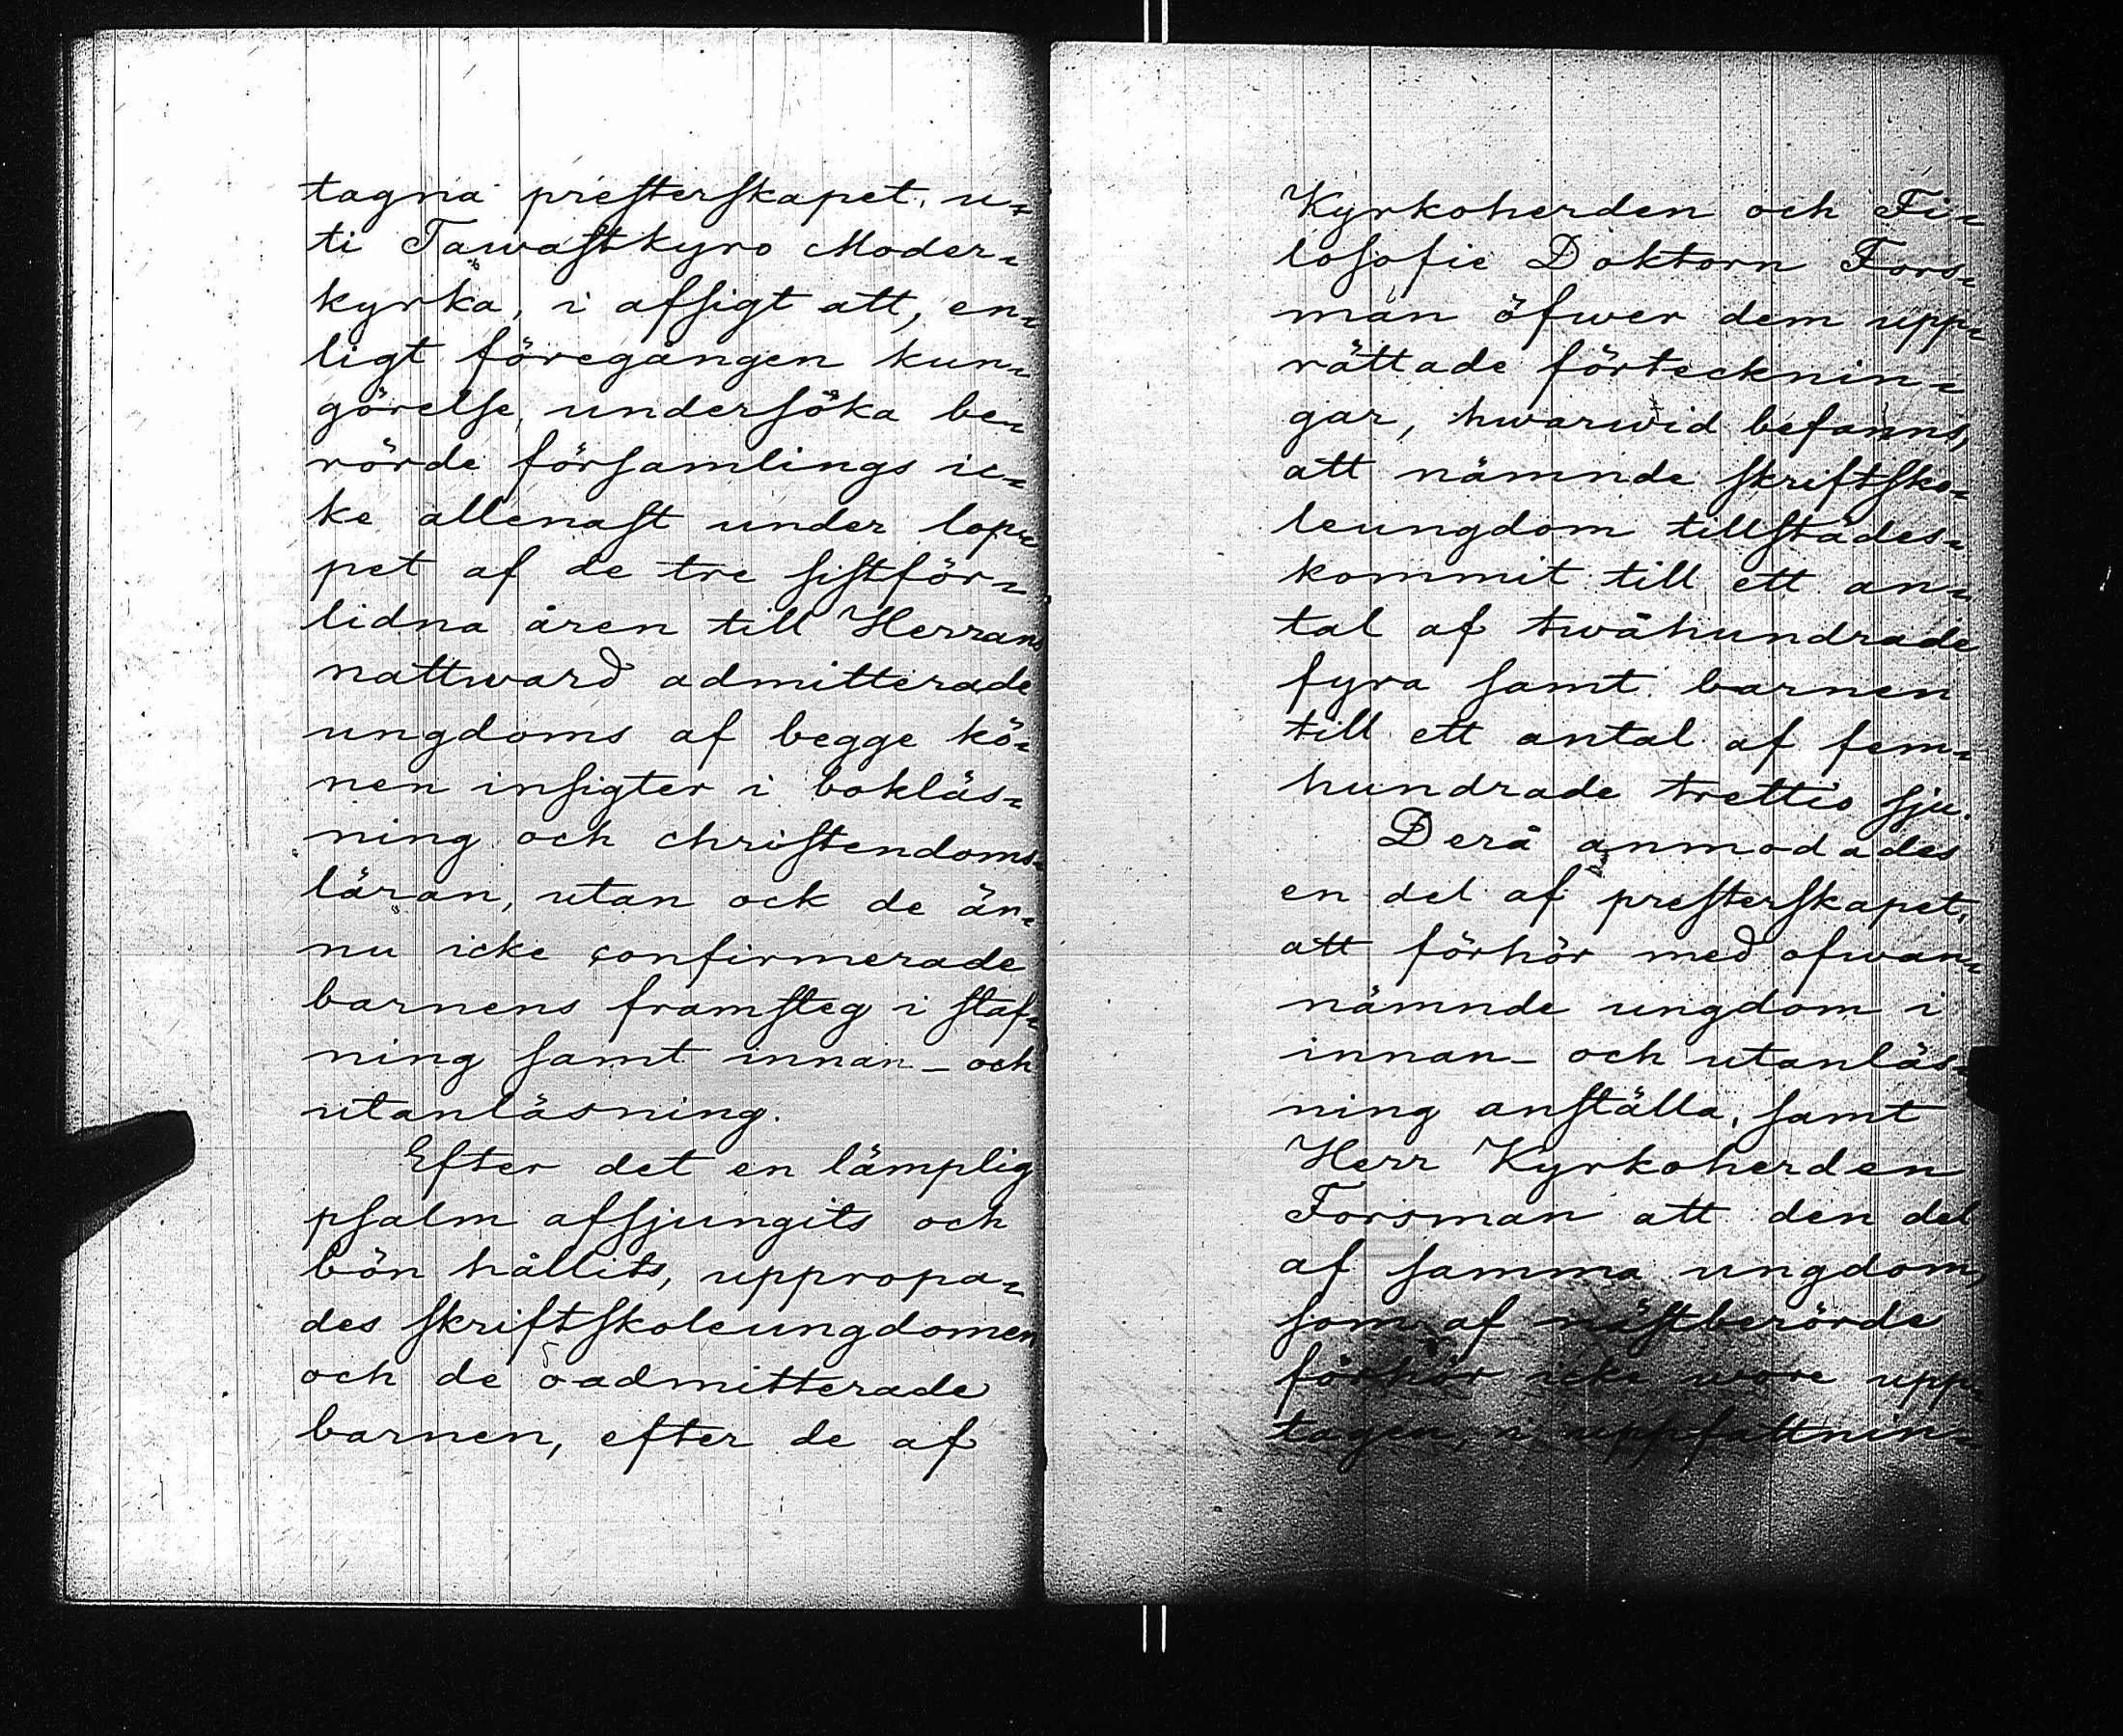 tagna presterskapet, u-
ti Tawastkyro Moder-
kyrka, i afsigt att, en-
ligt föregången kun-
görelse, undersöka be-
rörde församlings ic-
ke allenast under lop-
pet af de tre sistför-
lidna åren till Herrans
nattward admitterade
ungdoms af begge kö-
nen insigter i bokläs-
ning och christendoms-
läran, utan ock de än-
nu icke confirmerade
barnens framsteg i staf-
ning samt innan- och
utanläsning.
Efter det en lämplig
psalm afsjungits och
bön hållits, uppropa-
des skriftskoleungdomen
och de oadmitterade
barnen, efter de af
Kyrkoherden och Fi-
losofie Doktorn Fors-
man öfwer dem upp-
rättade förtecknin-
gar, hwarwid befanns,
att nämnde skriftsko-
leungdom tillstädes-
kommit till ett an-
tal af twåhundrade
fyra samt barnen
till ett antal af fem-
hundrade trettio sju.
Derå anmodades
en del af presterskapet,
att förhör med ofwan-
nämnde ungdom i
innan- och utanläs-
ning anställa, samt
Herr Kyrkoherden
Forsman att den del
af samma ungdom,
som af nästberörde
förhör icke wore upp-
tagen, i uppfattnin-